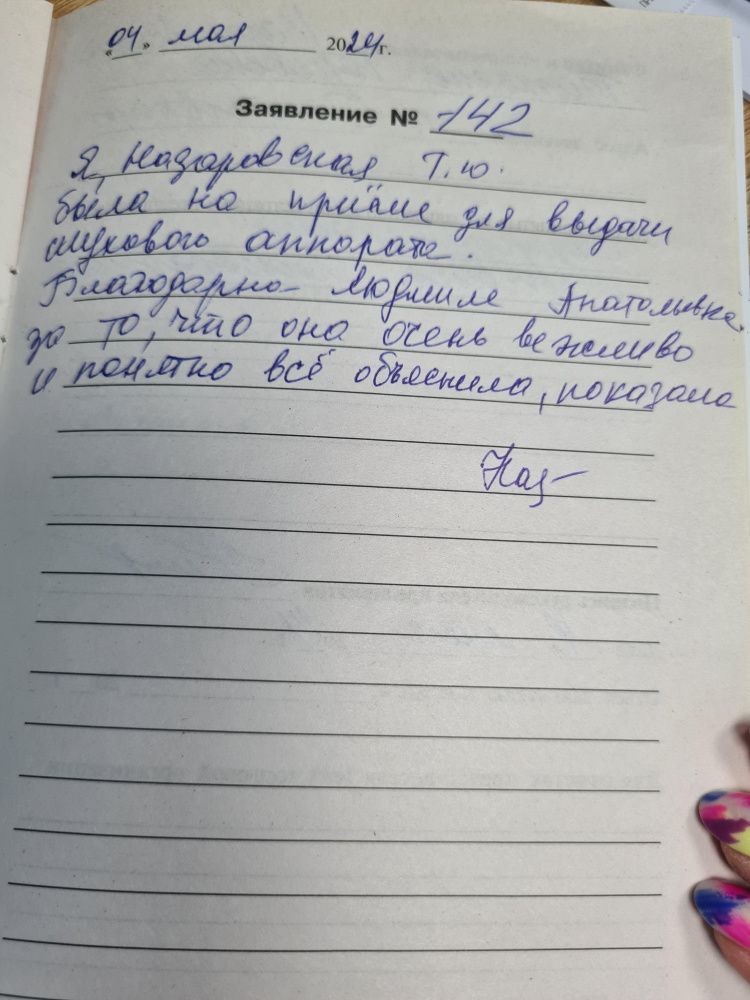 «04» мая 2024г.
Заявление № 142
Я, Назаровская Т.Ю.
была на приёме для выдачи
слухового аппарата.
Благодарна Людмиле Анатольевне
за то, что она очень вежливо
и понятно всё объяснила, показала
Наз